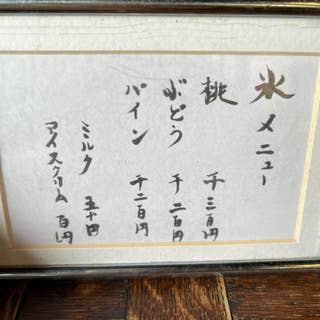 氷メニュー
桃 千三百円
ぶどう 千二百円
パイン 千二百円
ミルク 五十円
アイスクリーム 百円